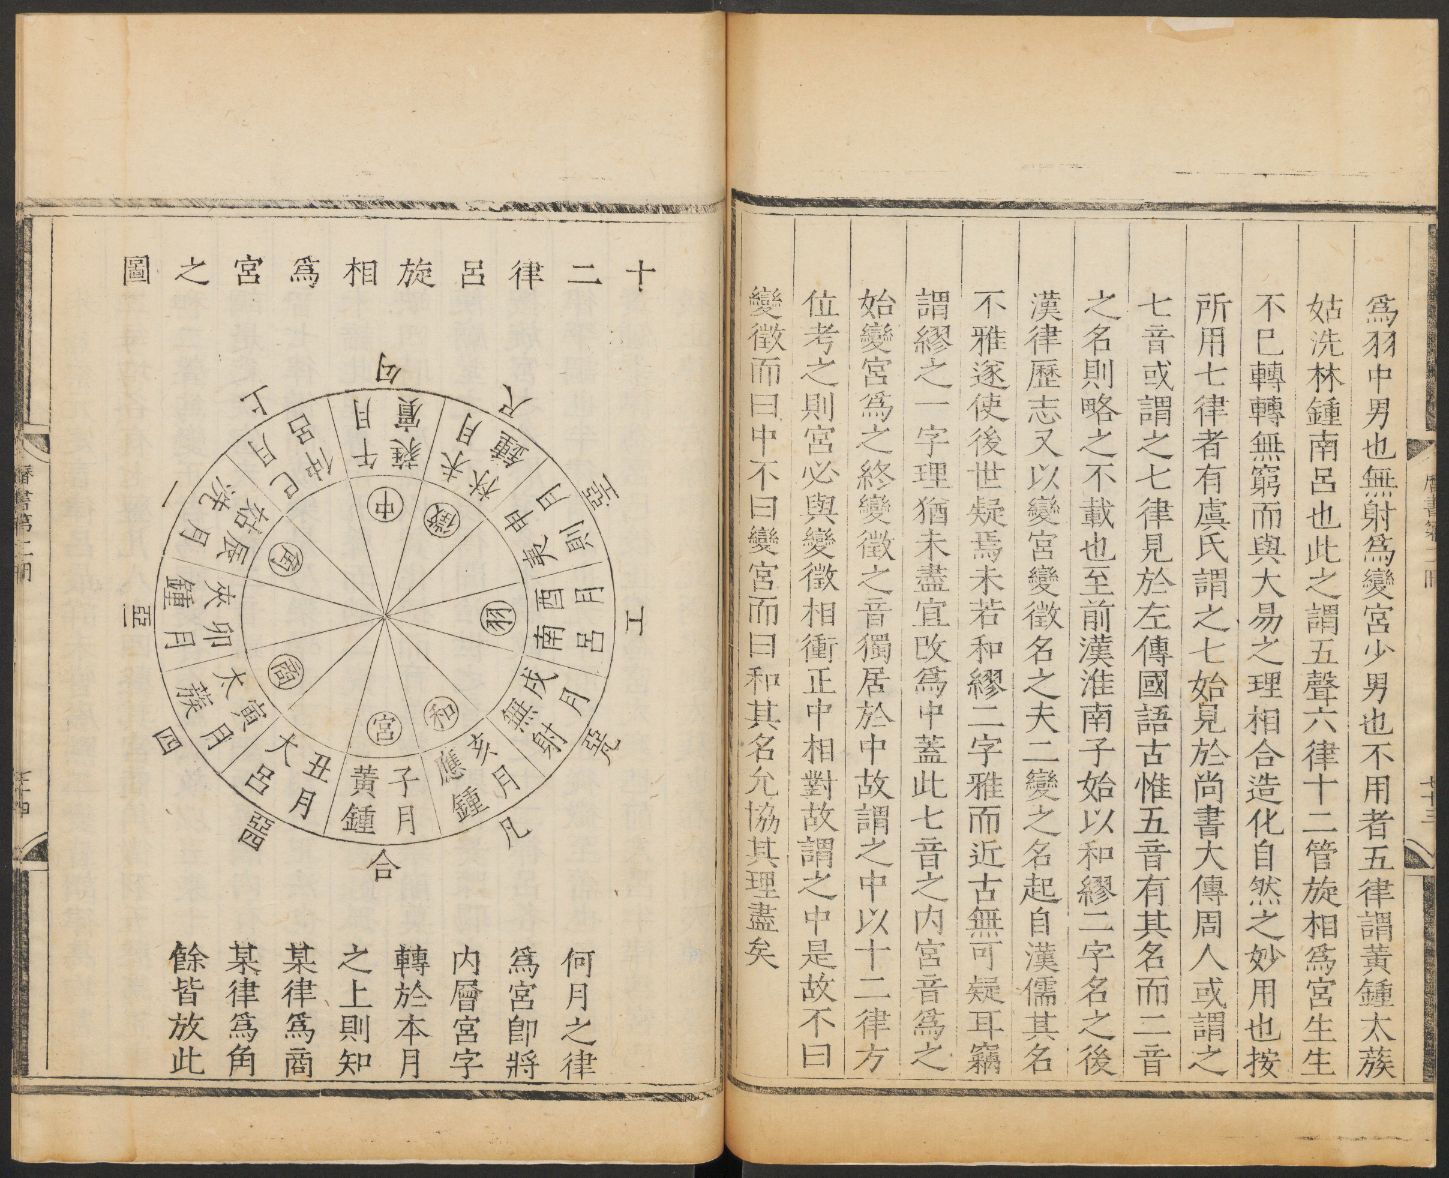 爲羽中男也無射爲變宮少男也不用者五律謂黃鍾太蔟
姑洗林鍾南呂也此之謂五聲六律十二管旋相爲宮生生
不已轉轉無窮而與大易之理相合造化自然之妙用也按
所用七律者有虞氏謂之七始見於尚書大傳周人或謂之
七音或謂之七律見於左傳國語古惟五音有其名而二音
之名則略之不載也至前漢淮南子始以和繆二字名之後
漢律歷志又以變宮變徵名之夫二變之名起自漢儒其名
不雅遂使後世疑焉未若和繆二字雅而近古無可疑耳竊
謂繆之一字理猶未盡宜改爲中蓋此七音之內宮音爲之
始變宮爲之終變徵之音獨居於中故謂之中以十二律方
位考之則宮必與變徵相衝正中相對故謂之中是故不曰
變徵而曰中不曰變宮而曰和其名允協其理盡矣
十二律呂旋相爲宮之圖
合
四
一
上
勾
尺
工
凡
子月黃鍾
丑月大呂
寅月太蔟
卯月夾鍾
辰月姑洗
巳月仲呂
午月蕤賓
未月林鐘
申月夷則
酉月南呂
戌月無射
亥月應鍾
宮
商
角
中
徵
羽
和
何月之律
爲宮卽將
內層宮字
轉於本月
之上則知
某律爲商
某律爲角
餘皆放此